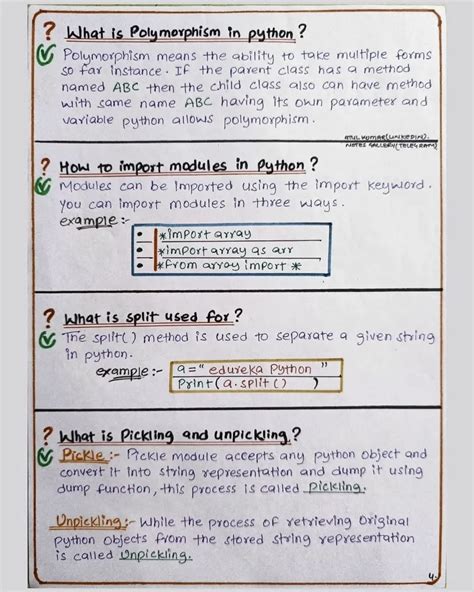 ? What is Polymorphism in python?
Polymorphism means the ability to take multiple forms
so far instance. If the parent class has a method
named ABC then the child class also can have method
with same name ABC having its own parameter and
variable python allows polymorphism.
ATUL KUMAR(LINKEDIN).
NOTES GALLERY(TELEGRAM)
? How to import modules in Python?
Modules can be imported using the import keyword.
you can import modules in three ways.
example:-
• *import array
• *import array as arr
• *from array import *
? What is split used for?
The split() method is used to separate a given string
in python.
example:- a="edureka Python"
Print(a.split()    )
? What is Pickling and unpickling?
Pickle:- Pickle module accepts any python object and
convert it into string representation and dump it using
dump function, this process is called Pickling.
Unpickling:- While the process of retrieving original
python objects from the stored string representation
is called Unpickling.
4.